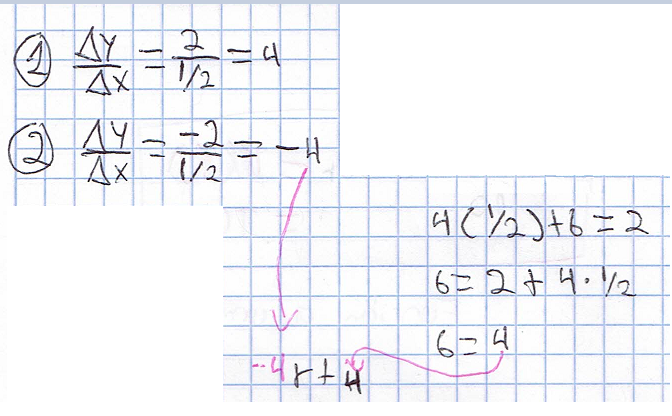 ① ΔY/ΔX = 2/1/2 = 4
② ΔY/ΔX = -2/1/2 = -4
4(1/2)+b=2
b=2+4·1/2
b=4
-4r+4